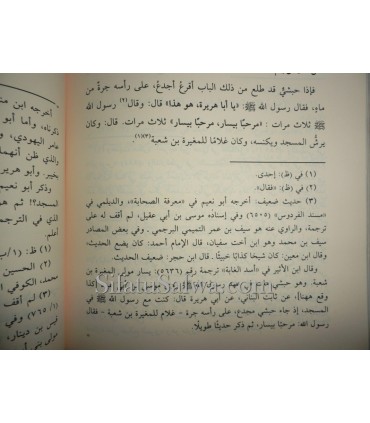 فإذا حبشيٌّ قد طلع من ذلك الباب أقرعُ أجدعُ، على رأسه جرةٌ من
ماءٍ، فقال رسول الله ﷺ: «يا أبا هريرة، هو هذا» قال: وقال(٢) رسول الله
ﷺ ثلاث مرات: «مرحبًا بيسار، مرحبًا بيسار» ثلاث مرات. قال: وكان
يرشُّ المسجد ويكنسه، وكان غلامًا للمغيرة بن شعبة(٣)(١).
(١) في (ظ): إحدى.
(٢) في (ظ): «فقال».
(٣) حديث ضعيف: أخرجه أبو نعيم في «معرفة الصحابة»، والديلمي في
«مسند الفردوس» (٦٥٠٥) وفي إسناده موسى بن أبي عقيل، لم أقف له على
ترجمة، والراوي عنه هو سيف بن عمر التميمي البرجمي. وفي بعض المصادر
سيف بن محمد وهو ابن أخت سفيان، قال الإمام أحمد: كان يضع الحديث،
وقال ابن معين: كان شيخًا كذابًا خبيثًا. قال ابن حجر: ضعيف الحديث.
وقال ابن الأثير في «أسد الغابة» ترجمة رقم (٥٦٣٦): يسار مولى المغيرة بن
شعبة. وهو حبشي
وقع ههنا]، عن ثابت البناني، عن أبي هريرة قال: كنت مع رسول الله ﷺ في
المسجد، إذ جاء حبشي مجدع، على رأسه جرة - غلام للمغيرة بن شعبة - فقال
رسول الله: مرحبًا بيسار، ثم ذكر حديثًا طويلًا.
أخرجه ابن
ذكرناه، وأما أبو
عامر اليهودي،
والذي ظن أنهما
بخيبر. وأبو هريرة
المسجد؟! ثم
وذكر أبو نعيم
الذي في الترجمة
أعلم.
(١) ظ: (١/ب
(٢) الحسين
محمد، الكوفي
(٣) لم أقف
(١/ ٧٦٥) وفي
قيس بن دينار،
Silatusalwa.com